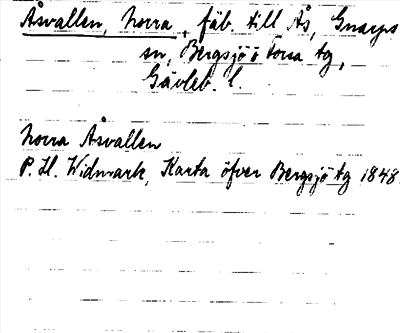 Åsvallen, Norra, fäb. till Ås, Gnarps
sn, Bergsjö o Forsa tg,
Gävleb. l.
Norra Åsvallen
P. H. Widmark, Karta öfver Bergsjö tg 1848